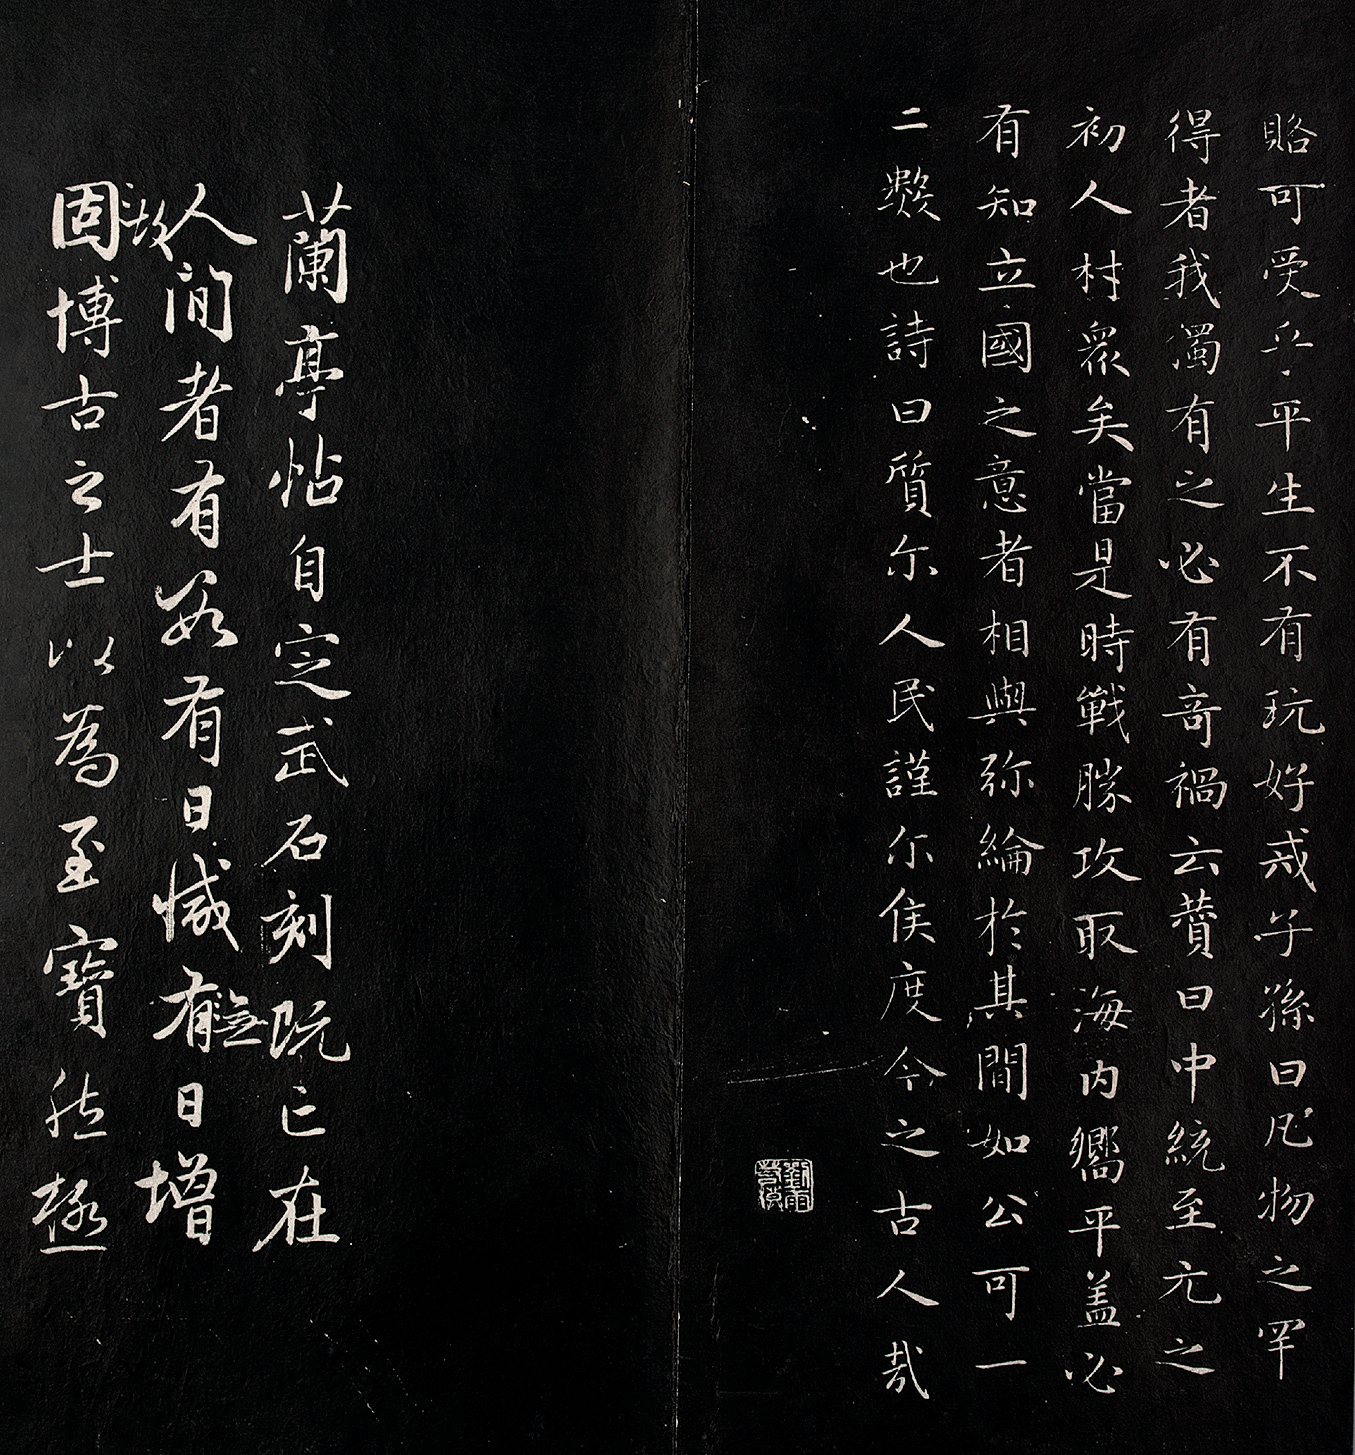 賂可受乎平生不有玩好戒子孫曰凡物之罕
得者我獨有之必有奇禍云贊曰中統至元之
初人材眾矣當是時戰勝攻取海内嚮平盖必
有知立國之意者相與弥綸於其間如公可一
二數也詩曰質尔人民謹尔侯度今之古人哉
蘭亭帖自定武石刻既已在
人間者有數有日減有無日增
故
固博古之士以為至寶然極